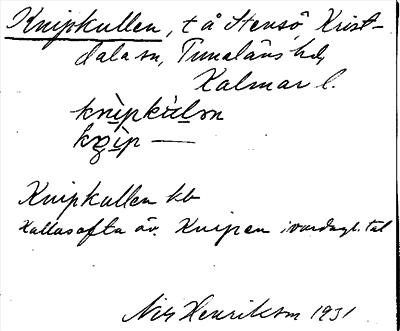 Knipkullen, t å Stensö, Krist-
dala sn, Tunaläns hd,
Kalmar l.
knìpkùlən
kn̥ìp —
Knipkullen kb
Kallas ofta äv. Knipen i vardagl. tal
Nils Henriksson 1931